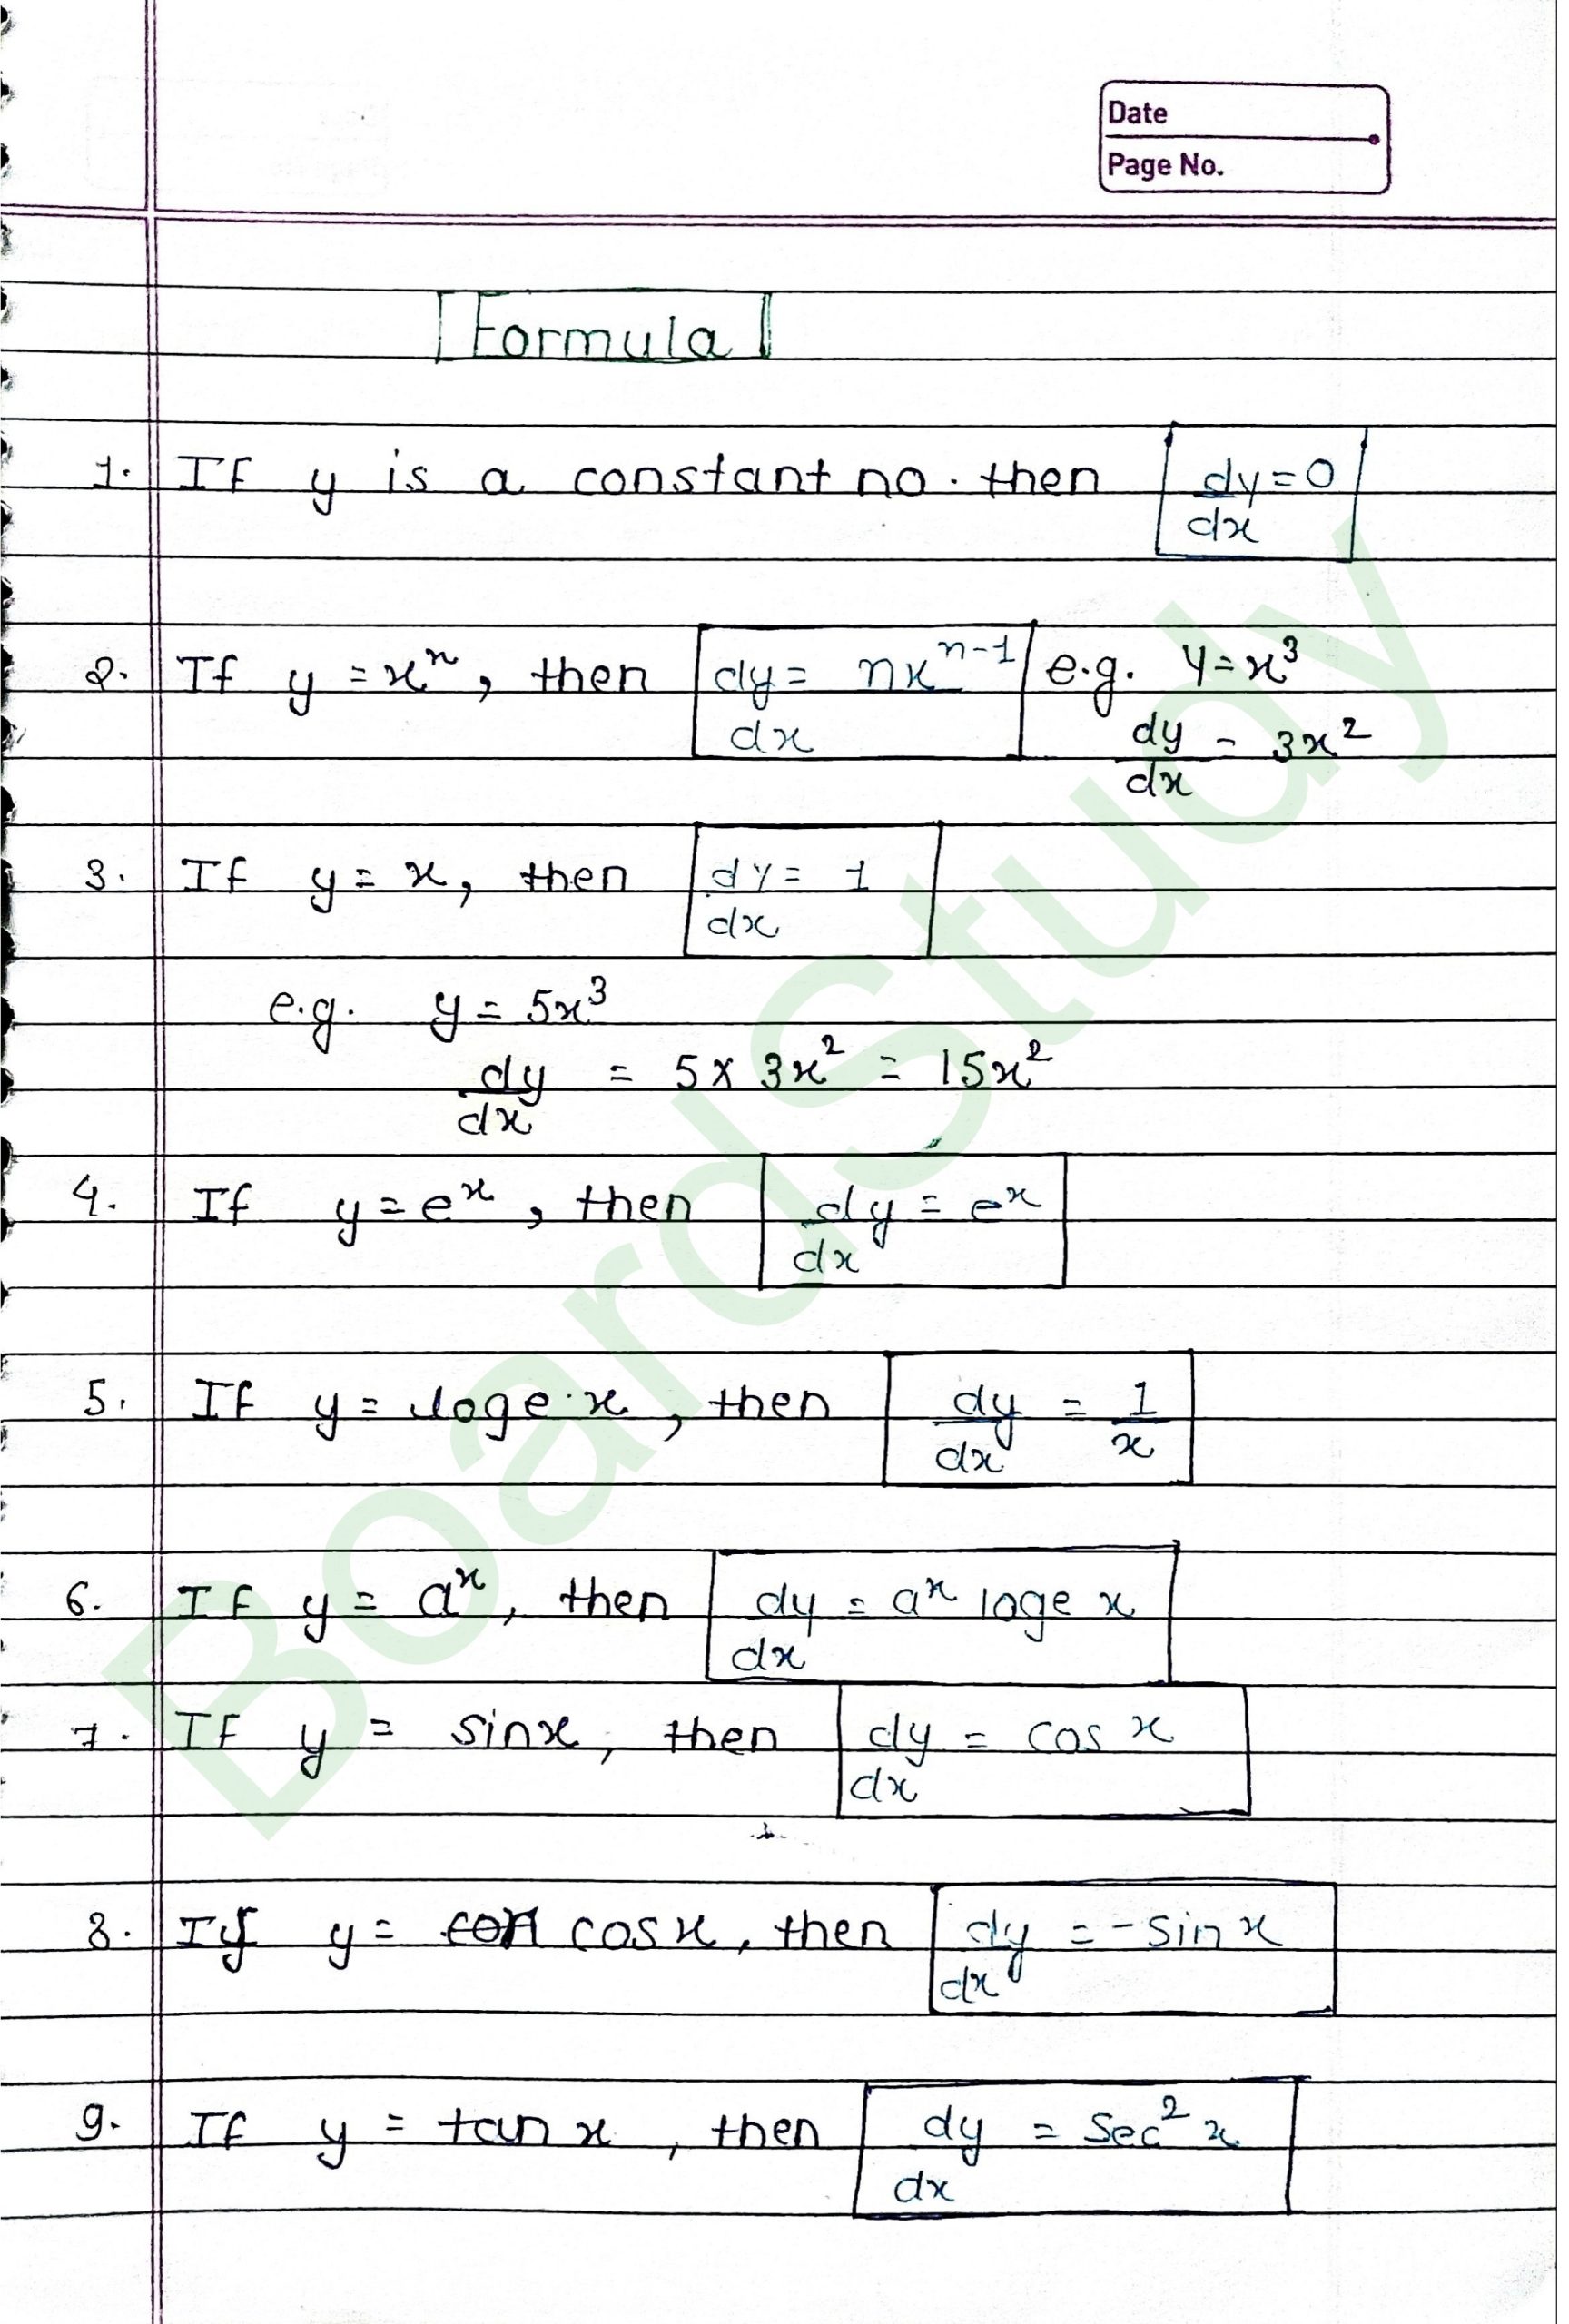 Date
Page No.
Formula
1. If y is a constant no. then dy/dx = 0
2. If y = xⁿ, then dy/dx = nxⁿ⁻¹ e.g. y = x³
dy/dx = 3x²
3. If y = x, then dy/dx = 1
e.g. y = 5x³
dy/dx = 5 × 3x² = 15x²
4. If y = eˣ, then dy/dx = eˣ
5. If y = loge·x, then dy/dx = 1/x
6. If y = aˣ, then dy/dx = aˣ loge x
7. If y = sinx, then dy/dx = cos x
8. If y = cosx, then dy/dx = -sin x
9. If y = tan x, then dy/dx = Sec² x
BoardStudy